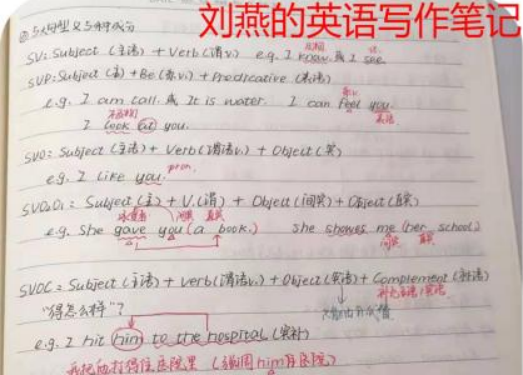 刘燕的英语写作笔记
SV: Subject (主语) + Verb (谓v.) e.g. I know. 或 I see.
SVP: Subject (主) + Be (系v.) + Predicative (表语)
e.g. I am tall. 或 It is water. I can feel you.
表语
I look at you.
SVO: Subject (主语) + Verb (谓语v.) + Object (宾)
pron.
e.g. I like you.
SVOiOi: Subject (主) + V. (谓) + Object (间宾) + Object (直宾)
间宾 直宾
e.g. She gave you (a book.) she shows me (her school)
间宾 直宾
SVOC = Subject (主语) + Verb (谓语v.) + Object (宾语) + Complement (补语)
"得怎么样"?
e.g. I hit him to the hospital (宾补)
我把他打得住医院里 (强调him在医院)